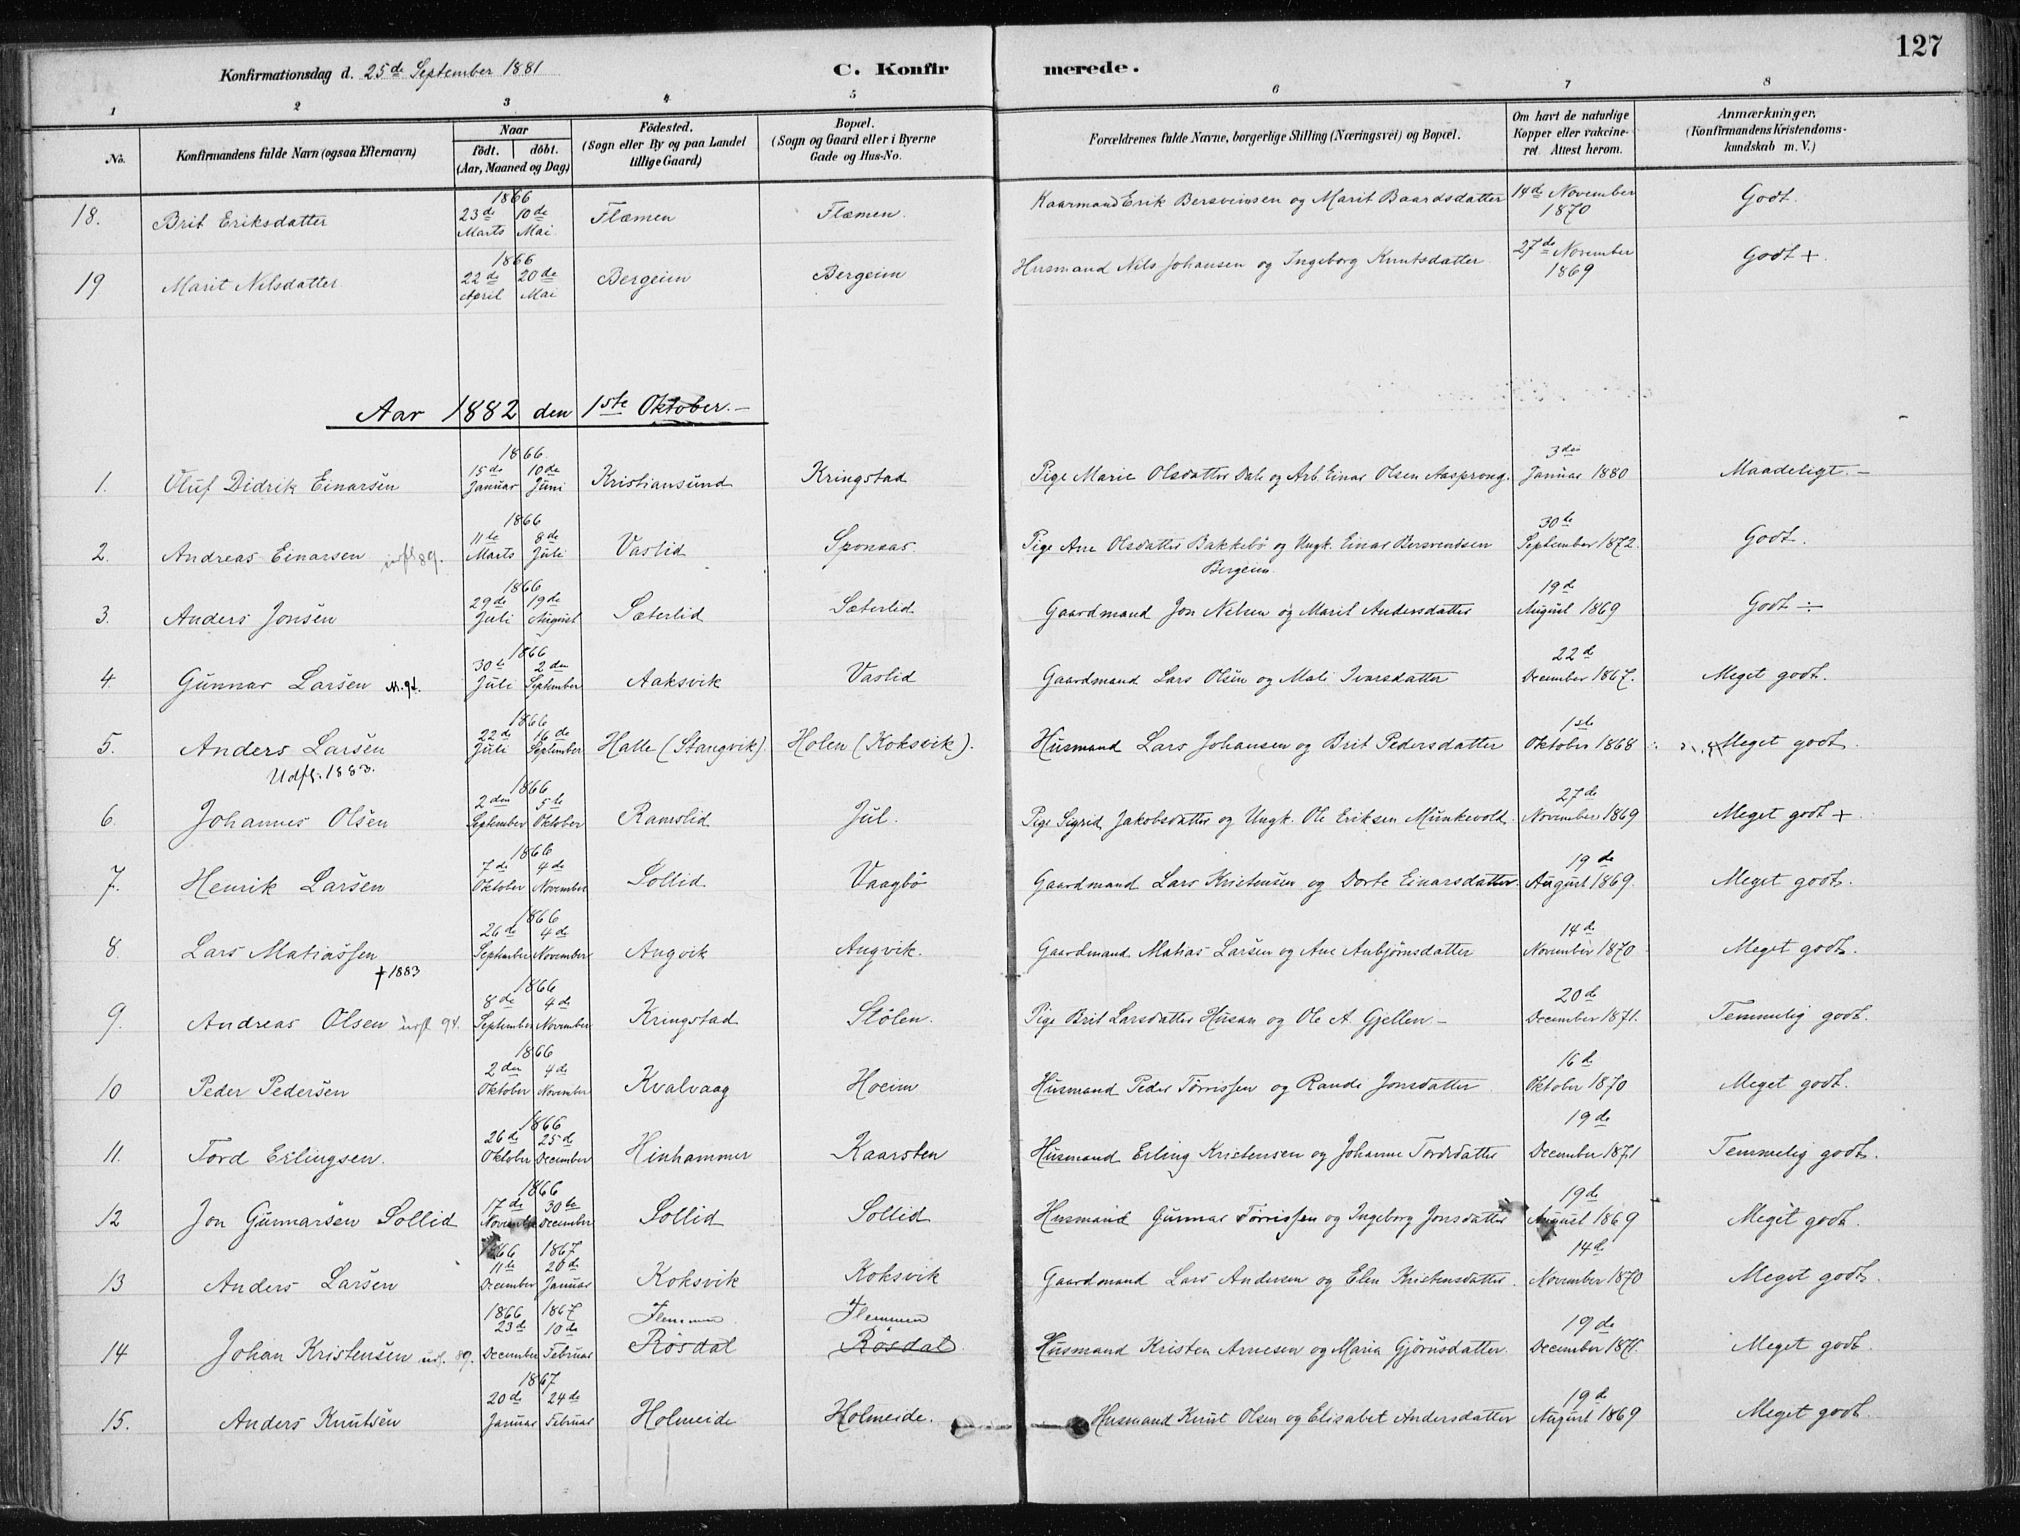 127
Konfirmationsdag d. 25de September 1881 C. Konfirmerede.
1 2 3 4 5 6 7 8
No. Konfirmandens fulde Navn (ogsaa Efternavn) Naar födt. döbt. (Aar, Maaned og Dag) Födested. (Sogn eller By og paa Landet tillige Gaard) Bopæl. (Sogn og Gaard eller i Byerne Gade og Hus-No. Forældrenes fulde Navne, borgerlige Stilling (Næringsvei) og Bopæl. Om havt de naturlige Kopper eller vakcineret. Attest herom. Anmærkninger. (Konfirmandens Kristendomskundskab m. V.)
18. Brit Eriksdatter 1866 23de Marts 10de Mai Flæmen Flæmen. Kaarmand Erik Bersveinsen og Marit Baardsdatter 14de November 1870 Godt.
19 Marit Nilsdatter 1866 22de April 20de Mai Bergeim Bergeim Husmand Nils Johansen og Ingeborg Knutsdatter 27de November 1869 Godt +.
Aar 1882 den 1ste Oktober.—
1. Oluf Didrik Einarsen 1866. 15de Januar 10de Juni Kristiansund Kringstad Pige Marie Olsdatter Dale og Arb. Einar Olsen Aasprong. 3die Januar 1880 Maadeligt.—
2. Andreas Einarsen utfl 89. 1866 11te Marts 8de Juli Vaslid Sponaas Pige Ane Olsdatter Bakkebö og Ungk. Einar Bersvendsen Bergeim 30te September 1872. Godt.
3. Anders Jonsen 1866 29de Juli 19de August Sæterlid Sæterlid Gaardmand Jon Nelsen og Marit Andersdatter 19de August 1869 Godt ÷
4. Gunnar Larsen M. 94. 1866 30te Juli 2den September Aaksvik Vaslid Gaardmand Lars Olsen og Mali Ivarsdatter 22de December 1867. Meget godt.
5. Anders Larsen Udfl. 1883. 1866 22de Juli 16de September Halle (Stangvik) Holen (Koksvik). Husmand Lars Johansen og Brit Pedersdatter 1ste Oktober 1868 Meget godt.
6. Johannes Olsen 1866 2den September 5te Oktober Ramslid Jul. Pige Sigrid Jakobsdatter og Ungk. Ole Eriksen Munkevold. 27de November 1869 Meget godt +.
7. Henrik Larsen 1866 7de Oktober 4de November Sollid Vaagbö Gaardmand Lars Kristensen og Dorte Einarsdatter. 19de August 1869. Meget godt.
8. Lars Matiassen † 1883 1866 26de September 4de November Angvik Angvik. Gaardmand Matias Larsen og Ane Anbjörnsdatter 14de November 1870 Meget godt.
9. Andreas Olsen utfl 94. 1866 8de September 4de November Kringstad Stölen. Pige Brit Larsdatter Husan og Ole A. Gjellen — 20de December 1871. Temmelig godt.
10 Peder Pedersen 1866 2den Oktober 4de November Kvalvaag Hoeim Husmand Peder Törrissen og Randi Jonsdatter 16de Oktober 1870 Meget godt.
11. Tord Erlingsen. 1866 26de Oktober 25de December Hinhammer Kaarsten Husmand Erling Kristensen og Johanne Tordsdatter 19de December 1871 Temmelig godt.
12 Jon Gunnarsen Sollid 1866 17de November 30te December Sollid Sollid Husmand Gunnar Törrissen og Ingeborg Jonsdatter 19de August 1869 Meget godt.
13 Anders Larsen 1866 11te December 1867 20de Januar Koksvik Koksvik Gaardmand Lars Andersen og Elen Kristensdatter. 14de November 1870 Meget godt.
14 Johan Kristensen utf. 89. 1866 23de December 1867 10de Februar Flemmen Rösdal Flemmen Rösdal. Husmand Kristen Arnesen og Maria Gjörusdatter. 19de December 1871. Meget godt.
15. Anders Knutsen 1867 20de Januar 24de Februar Holmeide Holmeide. Husmand Knut Olsen og Elisabet Andersdatter 19de August 1869 Meget godt.